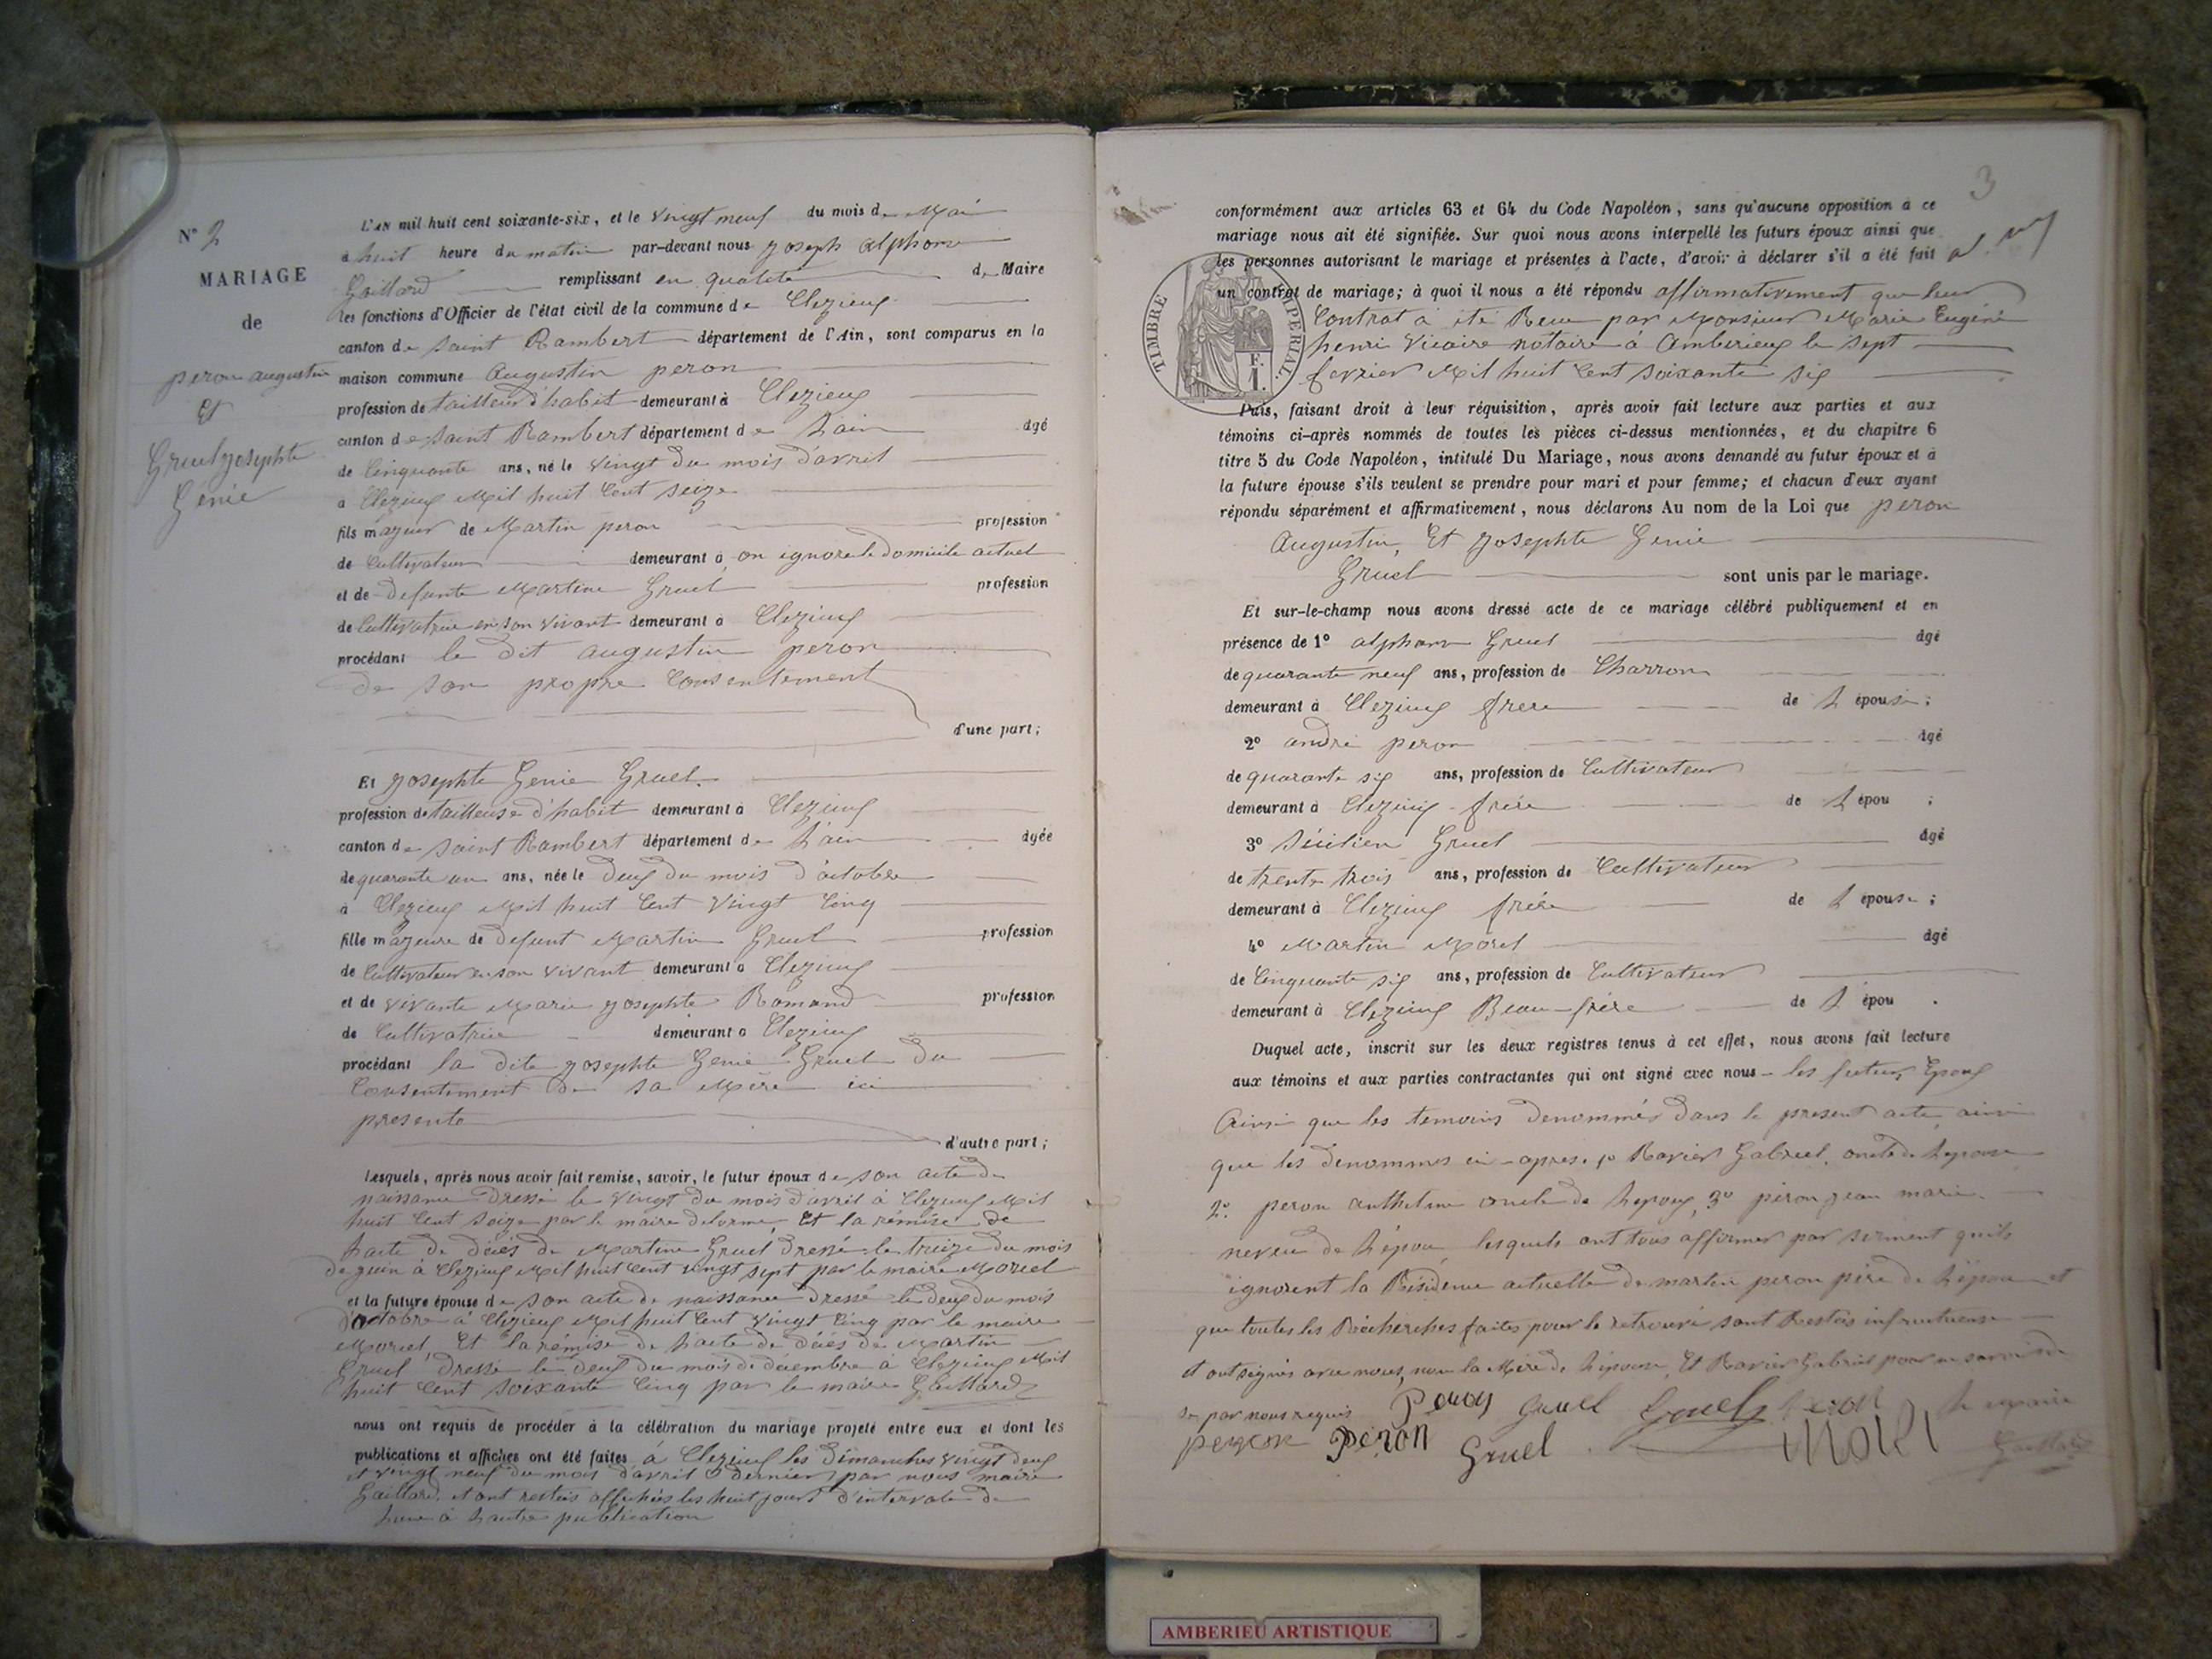 N° 2
MARIAGE
de
peron augustin
Et
Gruel Josephte
Génie
L'AN mil huit cent soixante-six, et le vingt neuf du mois de Mai
à huit heure du matin par-devant nous Joseph alphonse
Gaillard remplissant en qualité de Maire
les fonctions d'Officier de l'état civil de la commune de Clezieux
canton de Saint Rambert département de l'Ain, sont comparus en la
maison commune Augustin peron
profession de tailleur d'habit demeurant à Clezieux
canton de Saint Rambert département de Lain âgé
de Cinquante ans, né le vingt du mois d'avril
à Clezieux Mil huit Cent seize
fils majeur de Martin peron profession
de Cultivateur demeurant à on ignore le domicile actuel
et de Defunte Martine Gruel profession
de Cultivatrice en son vivant demeurant à Clezieux
procédant le dit augustin peron
de son propre Consentement
d'une part;
Et Josephte Genie Gruel
profession de tailleuse d'habit demeurant à Clezieux
canton de Saint Rambert département de Lain âgée
de quarante un ans, née le deux du mois d'octobre
à Clezieux Mil huit Cent vingt Cinq
fille majeure de defunt Martin Gruel profession
de Cultivateur en son vivant demeurant à Clezieux
et de vivante Marie Josephte Romand profession
de Cultivatrice demeurant à Clezieux
procédant la dite Josephte Genie Gruel du
Consentement de sa Mère ici
présente
d'autre part;
Lesquels, après nous avoir fait remise, savoir, le futur époux de son acte de
naissance Dressé le vingt du mois d'avril à Clezieux Mil
huit Cent seize par le maire Delorme, Et la rémise de
Lacte de décès de Martine Gruel dressé le treize du mois
de juin à Clezieux Mil huit Cent vingt sept par le maire Morel
et la future épouse de son acte de naissance Dressé le deux du mois
d'octobre à Clézieux Mil huit Cent vingt Cinq par le maire
Morel, Et la rémise de Lacte de décès de Martin
Gruel Dressé le deux du mois de décembre à Clezieux Mil
huit Cent soixante Cinq par le maire Gaillard
nous ont requis de procéder à la célébration du mariage projeté entre eux et dont les
publications et affiches ont été faites à Clezieux les dimanches vingt deux
et vingt neuf du mois d'avril dernier par nous maire
Gaillard et ont restées affichées les huit jours d'intervale de
Lune à Lautre publication
3
conformément aux articles 63 et 64 du Code Napoléon, sans qu'aucune opposition à ce
mariage nous ait été signifiée. Sur quoi nous avons interpellé les futurs époux ainsi que
les personnes autorisant le mariage et présentes à l'acte, d'avoir à déclarer s'il a été fait
un contrat de mariage; à quoi il nous a été répondu affirmativement que leur
Contrat à été Reçu par Monsieur Marie Eugene
henri Vicaire notaire à Amberieux le sept
fevrier Mil huit Cent soixante six
TIMBRE IMPERIAL
F.
1.
Puis, faisant droit à leur réquisition, après avoir fait lecture aux parties et aux
témoins ci-après nommés de toutes les pièces ci-dessus mentionnées, et du chapitre 6
titre 5 du Code Napoléon, intitulé Du Mariage, nous avons demandé au futur époux et à
la future épouse s'ils veulent se prendre pour mari et pour femme; et chacun d'eux ayant
répondu séparément et affirmativement, nous déclarons Au nom de la Loi que peron
Augustin, Et Josephte Genie
Gruel sont unis par le mariage.
Et sur-le-champ nous avons dressé acte de ce mariage célébré publiquement et en
présence de 1° alphonse Gruel âgé
de quarante neuf ans, profession de Charron
demeurant à Clezieux frere de L épouse;
2° andré peron âgé
de quarante six ans, profession de Cultivateur
demeurant à Clezieux frére de L épou ;
3° Sicilien Gruel âgé
de trente trois ans, profession de Cultivateur
demeurant à Clezieux frére de L épouse;
4° Martin Morel âgé
de Cinquante six ans, profession de Cultivateur
demeurant à Clezieux Beau-frére de L épou .
Duquel acte, inscrit sur les deux registres tenus à cet effet, nous avons fait lecture
aux témoins et aux parties contractantes qui ont signé avec nous les futurs Epoux
Ainsi que les temoins denommés dans le present acte ainsi
que les denommés ci-apres. 1° Ravier Gabriel. oncle de Lepouse
2° peron anthelme oncle de Lepoux, 3° péron jean marie.
neveu de Lépou lesquels ont tous affirmer par serment quils
ignorent la Résidence actuelle de martin peron pére de Lépou et
que toutes les Récherches faites pour le retrouvé sont Restées infructueuse
et ont signés avec nous, non la Mère de Lépouse, Et Ravier Gabriel pour ne savoir
de par nous requis Peron Gruel Gruel Peron le maire
peron Peron Gruel MOREL Gaillard
AMBERIEU ARTISTIQUE